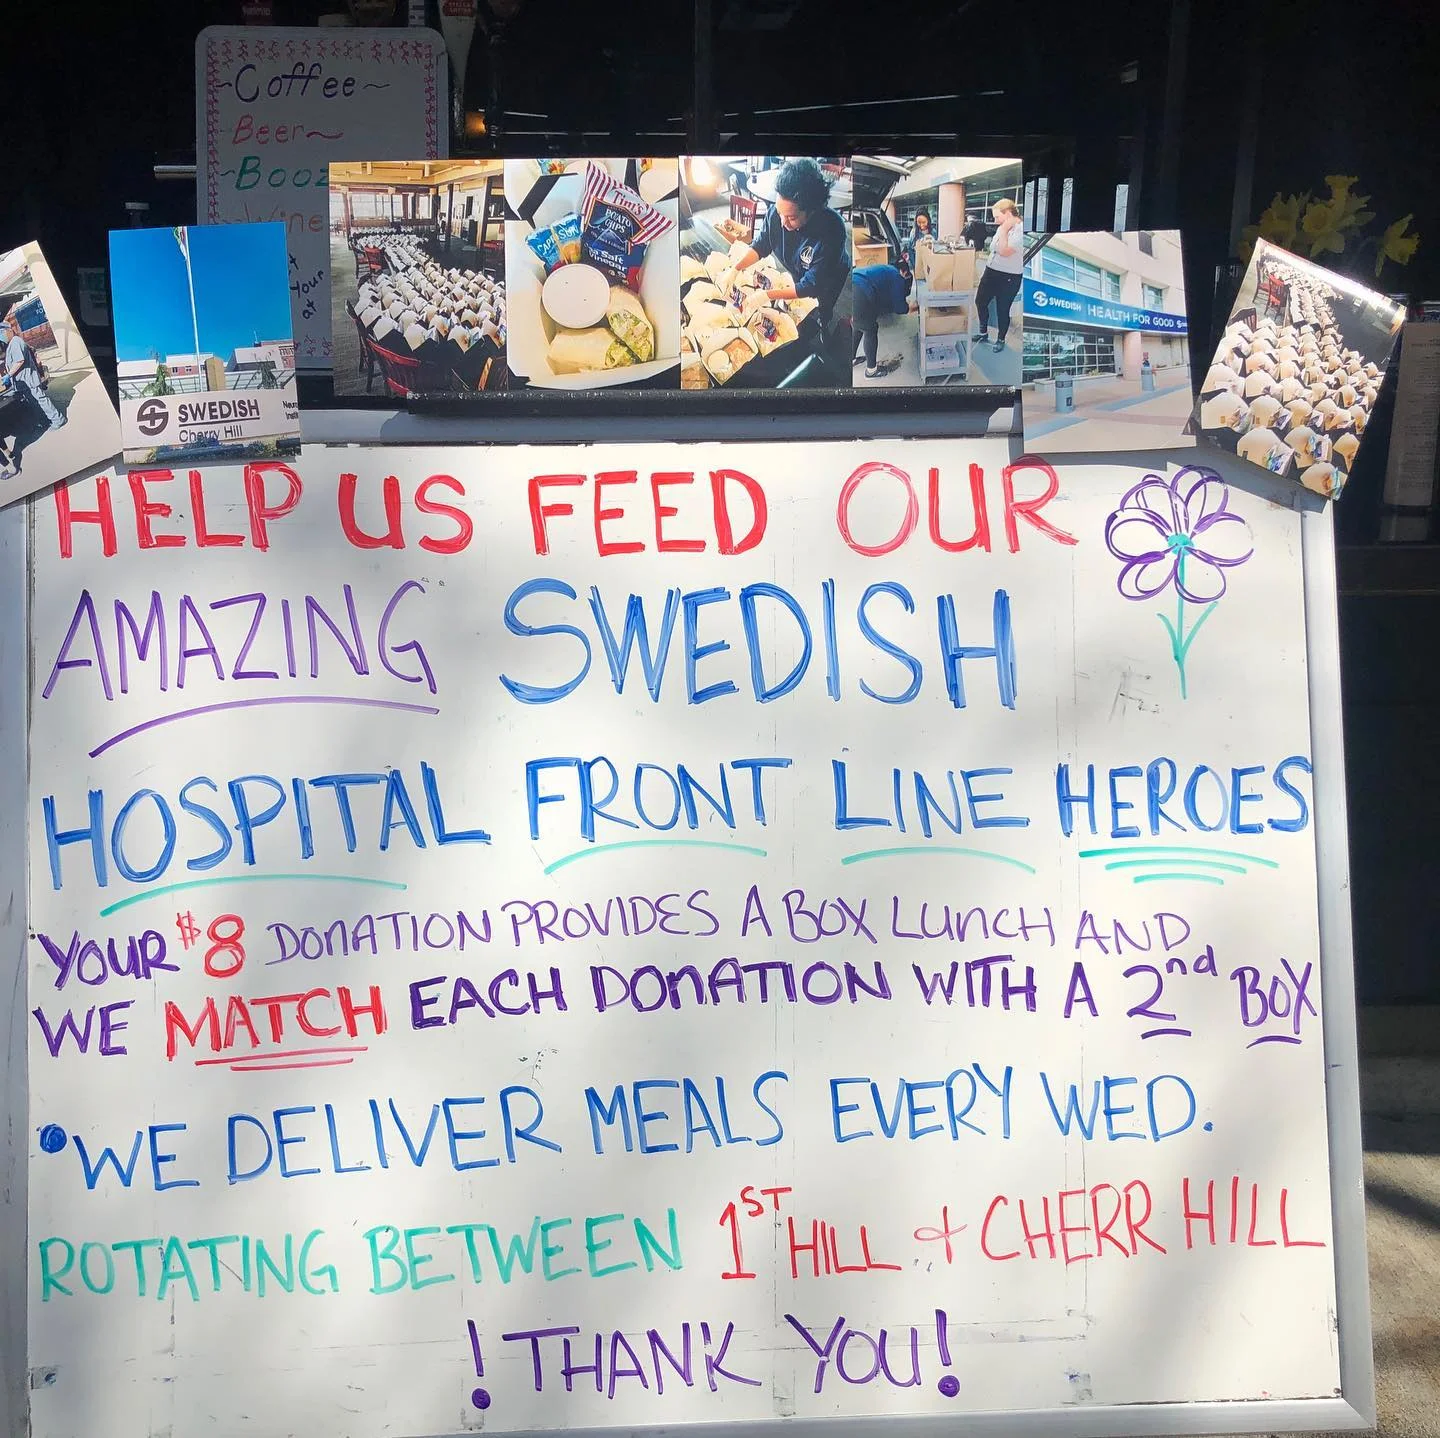 ~Coffee~
Beer~
~Booz
~Wine
Your
at
Tim's
POTATO
CHIPS
Sea Salt
Vinegar
CAPRI SUN
SWEDISH
Cherry Hill
SWEDISH HEALTH FOR GOOD
HELP US FEED OUR
AMAZING SWEDISH
HOSPITAL FRONT LINE HEROES
YOUR $8 DONATION PROVIDES A BOX LUNCH AND
WE MATCH EACH DONATION WITH A 2nd BOX
•WE DELIVER MEALS EVERY WED.
ROTATING BETWEEN 1ST HILL + CHERR HILL
! THANK YOU!